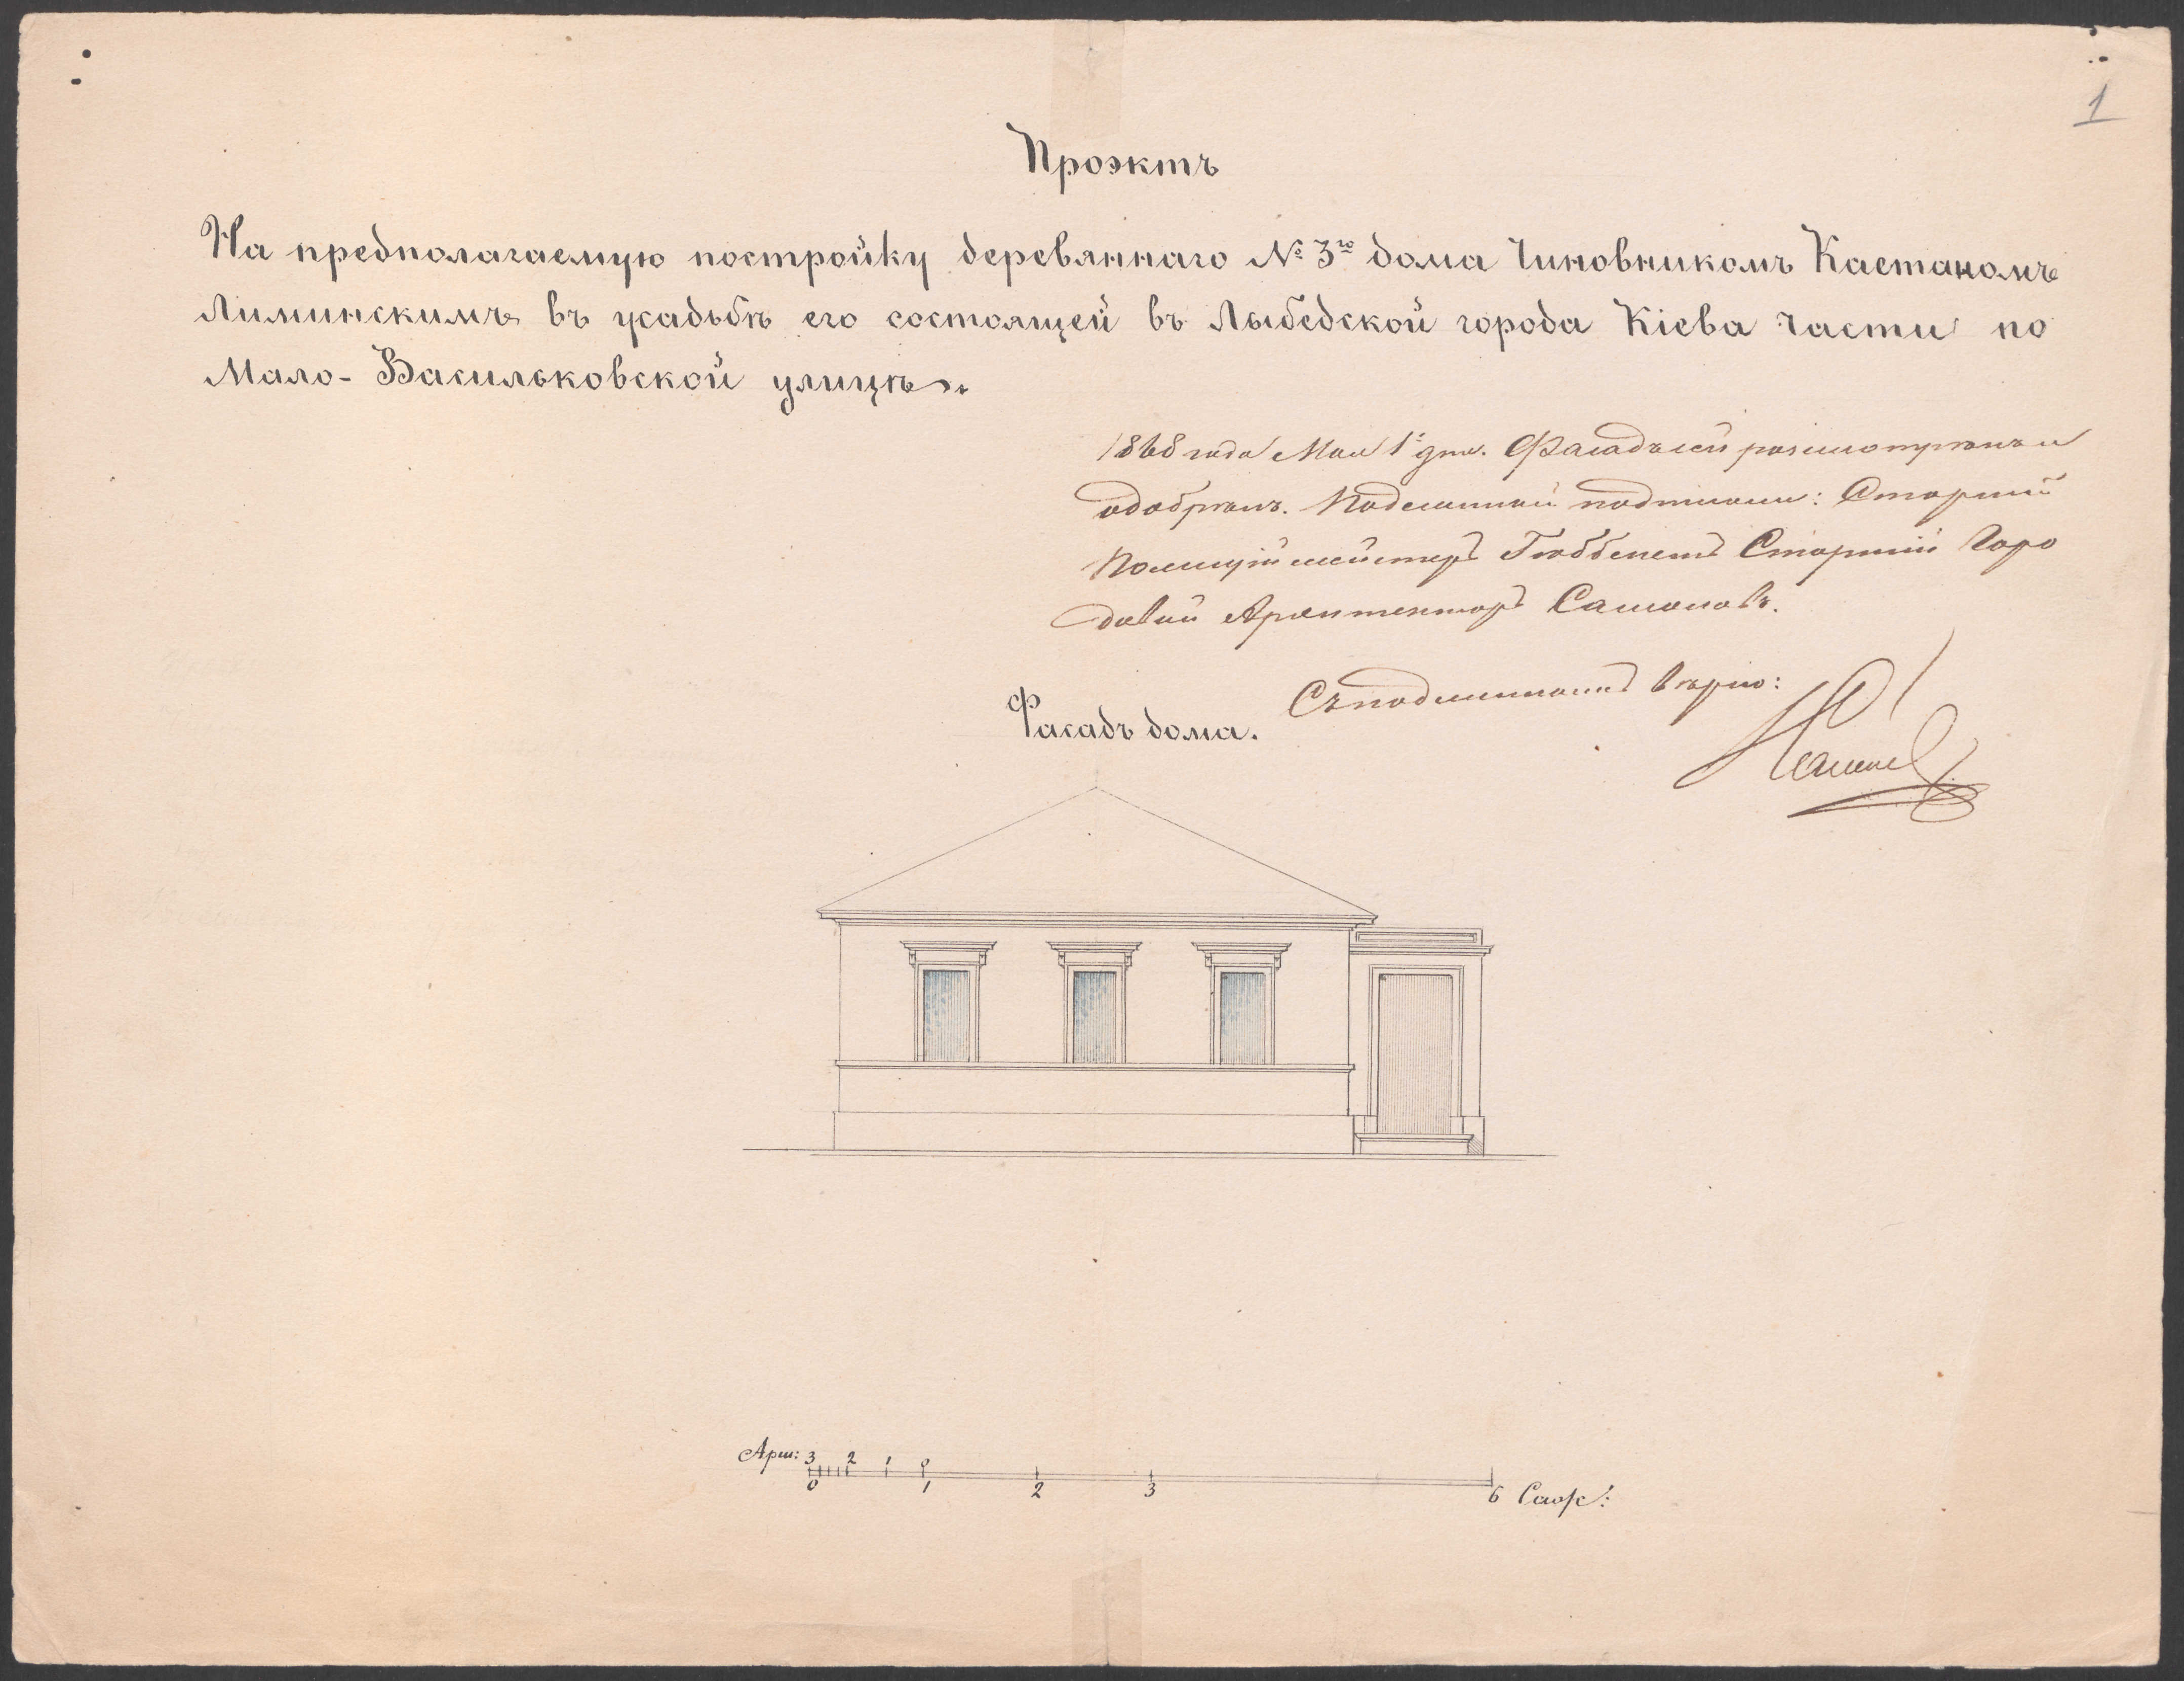 1
Проэктъ
На предполагаемую постройку деревяннаго № 3го дома Чиновникомъ Каетаномъ
Лиминскимъ въ усадьбѣ его состоящей въ Лыбедской города Кіева части по
Мало-Васильковской улицѣ.
1868 года Мая 1 дня. Фасадъ сей разсмотрѣнъ и
одобренъ. Подлинный подписали: Старшій
Полицiймейстеръ Гюббенетъ Старшій Горо
довой Архитекторъ
Съ подлиннымъ вѣрно:
Фасадъ дома.
Арш: 3 2 1 0
0 1 2 3 6 Саж: